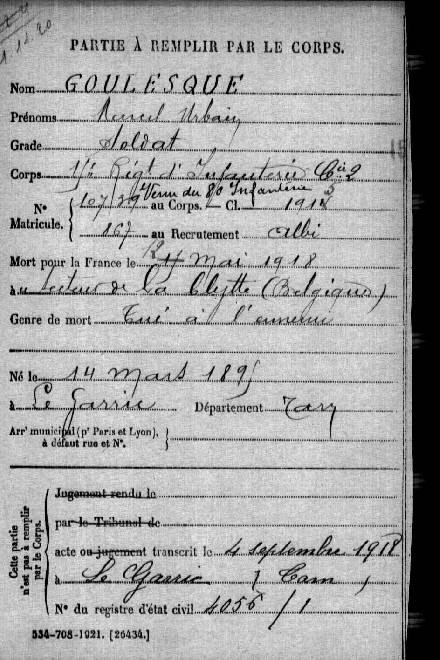 1.12.20
PARTIE À REMPLIR PAR LE CORPS.
Nom GOULESQUE
Prénoms Marcel Urbain
Grade Soldat
Corps Régt d'Infanterie Cie 2
Venu du 80 Infanterie 5
N° Matricule. { 10729 au Corps. — Cl. 1915
167 au Recrutement Albi
Mort pour la France le Mai 1918
au secteur de La Clytte (Belgique)
Genre de mort Tué à l'ennemi
Né le 14 Mars 1895
à Le Garric Département Tarn
Arrt municipal (pr Paris et Lyon), à défaut rue et N°. }
Cette partie n'est pas à remplir par le Corps. {
Jugement rendu le
par le Tribunal de
acte ou jugement transcrit le 4 septembre 1918
à Le Garric } Tarn
N° du registre d'état civil 4056/1
534-708-1921. [26434.]